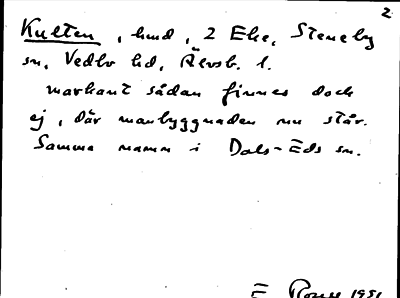 2
Kulten, hmd, 2 Ehe, Steneby
sn, Vedbo hd, Älvsb. l.
markant sådan finnes dock
ej, där manbyggnaden nu står.
Samma namn i Dals-Eds sn.
E 1951